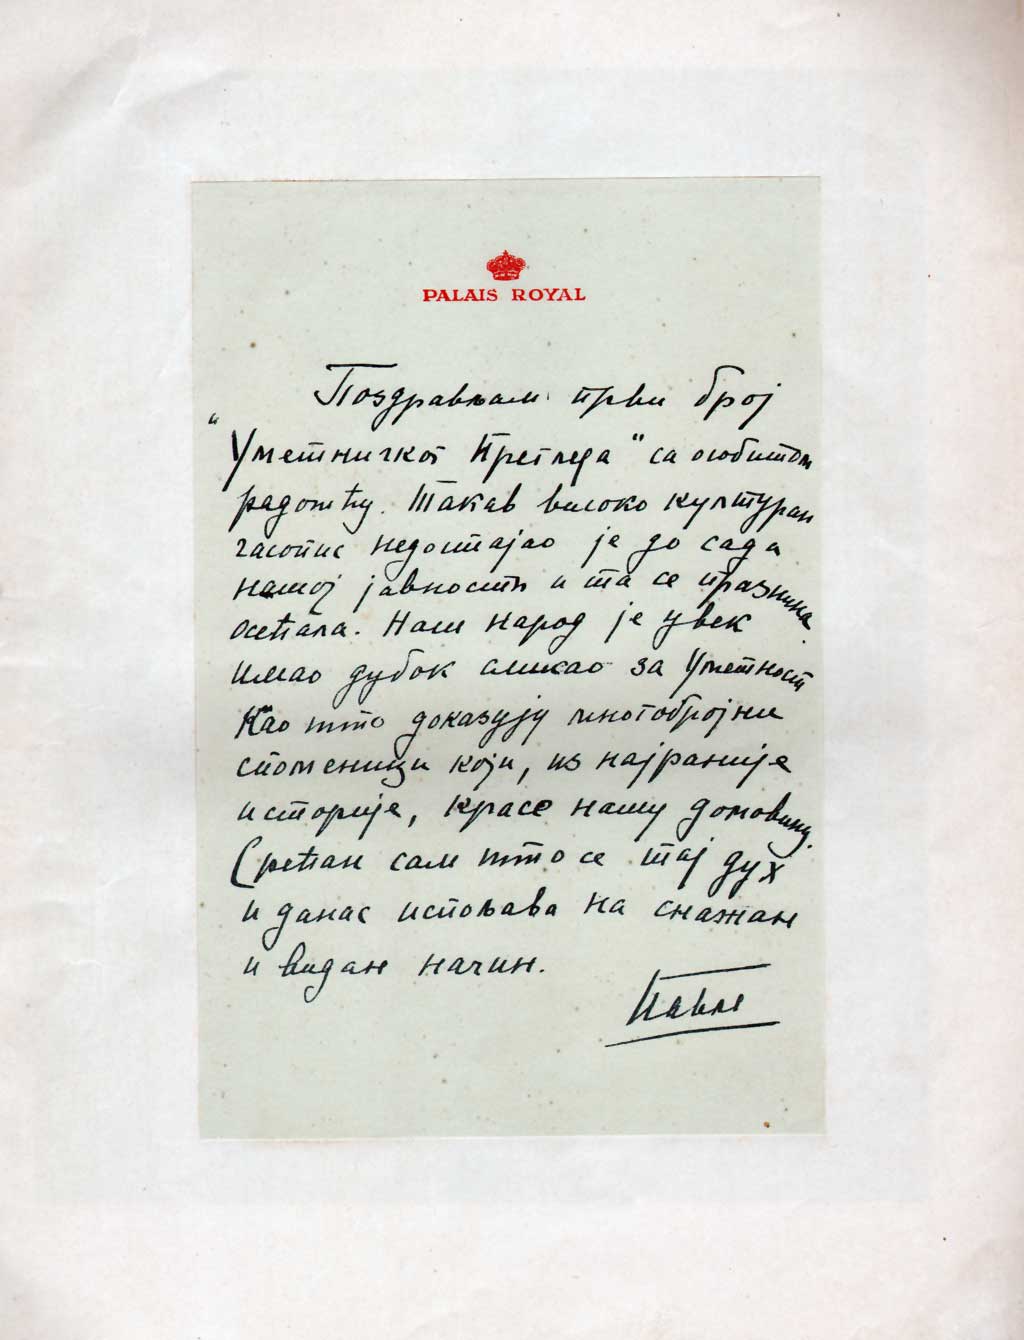 PALAIS ROYAL
Поздрављам први број
"Уметничког Прегледа" са особитом
радошћу. Такав високо културан
часопис недостајао је до сада
нашој јавности и та се празнина
осећала. Наш народ је увек
имао дубок смисао за Уметност
Као што доказују многобројни
споменици који, из најраније
историје, красе нашу домовину.
Срећан сам што се тај дух
и данас испољава на снажан
и видан начин.
Павле